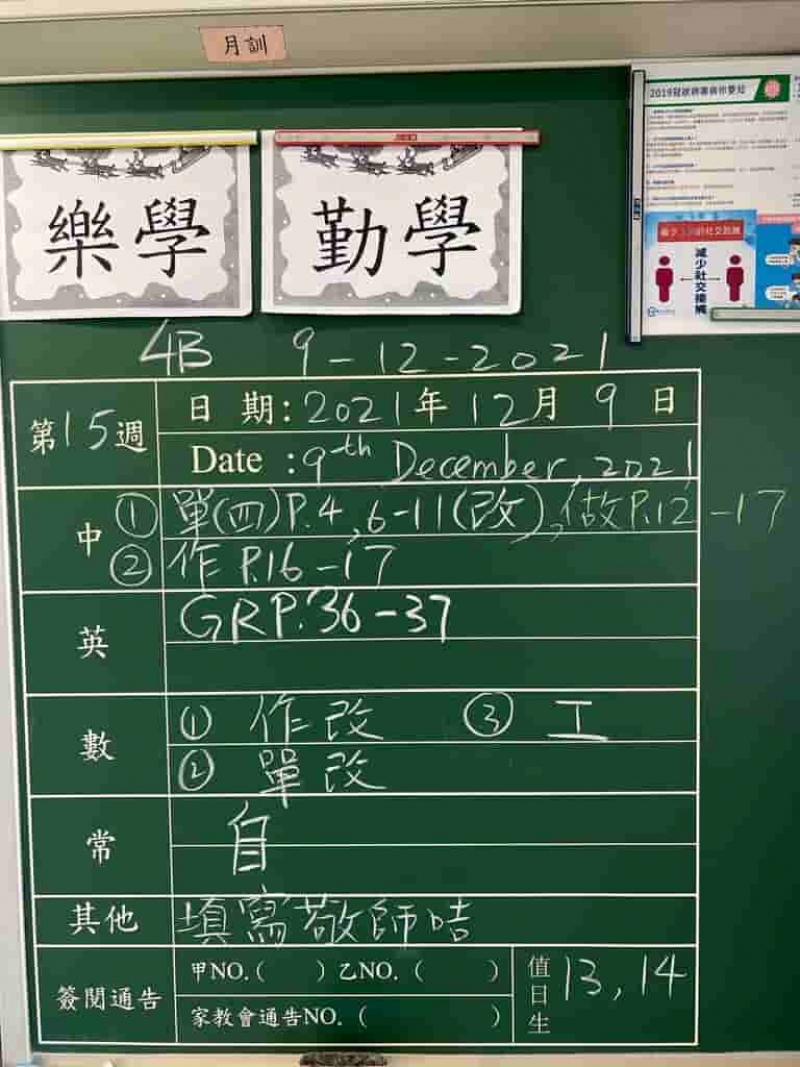 月訓
2019冠狀病毒病你要知
樂學
勤學
減少社交接觸
4B 9-12-2021
第15週
日期:2021年12月9日
Date :9th December, 2021
中
① 單(四)P.4,6-11(改),做P.12-17
② 作P.16-17
英
GRP.36-37
數
① 作改 ③ 工
② 單改
常
自
其他
填寫敬師咭
簽閱通告
甲NO.( ) 乙NO. ( )
家教會通告NO. ( )
值日生
13, 14